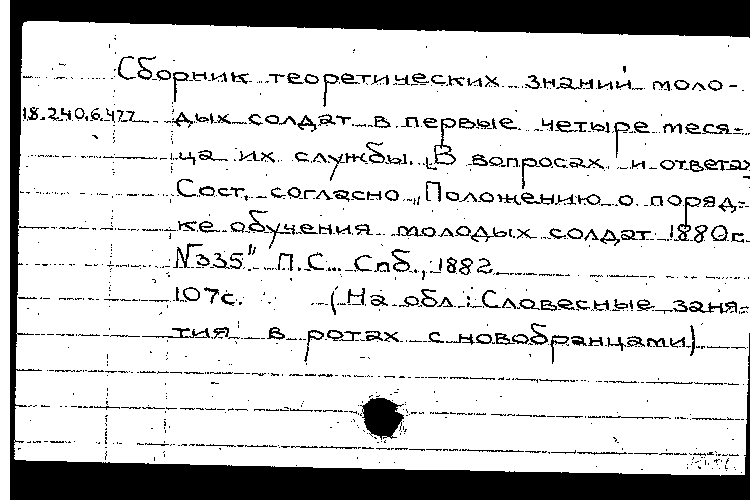 Сборник теоретических знаний моло-
18.240.6.477 дых солдат в первые четыре меся-
ца их службы. „В вопросах и ответах
Сост. согласно „Положению о поряд-
ке обучения молодых солдат 1880г.
№335" П.С. Спб., 1882.
107с. (На обл: Словесные заня-
тия в ротах с новобранцами)